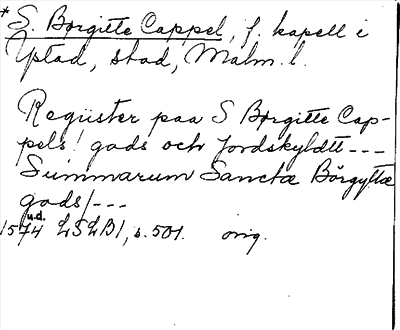 * S. Borgitte Cappel, f. kapell i
Ystad, stad, Malm. l.
Regiister paa S Borgitte Cap-
pels! gads och Jordskyldtt ---
Summarum Sanctæ Börgyttæ
gods/---
u.d.
1574 LSLB1, s. 501. orig.